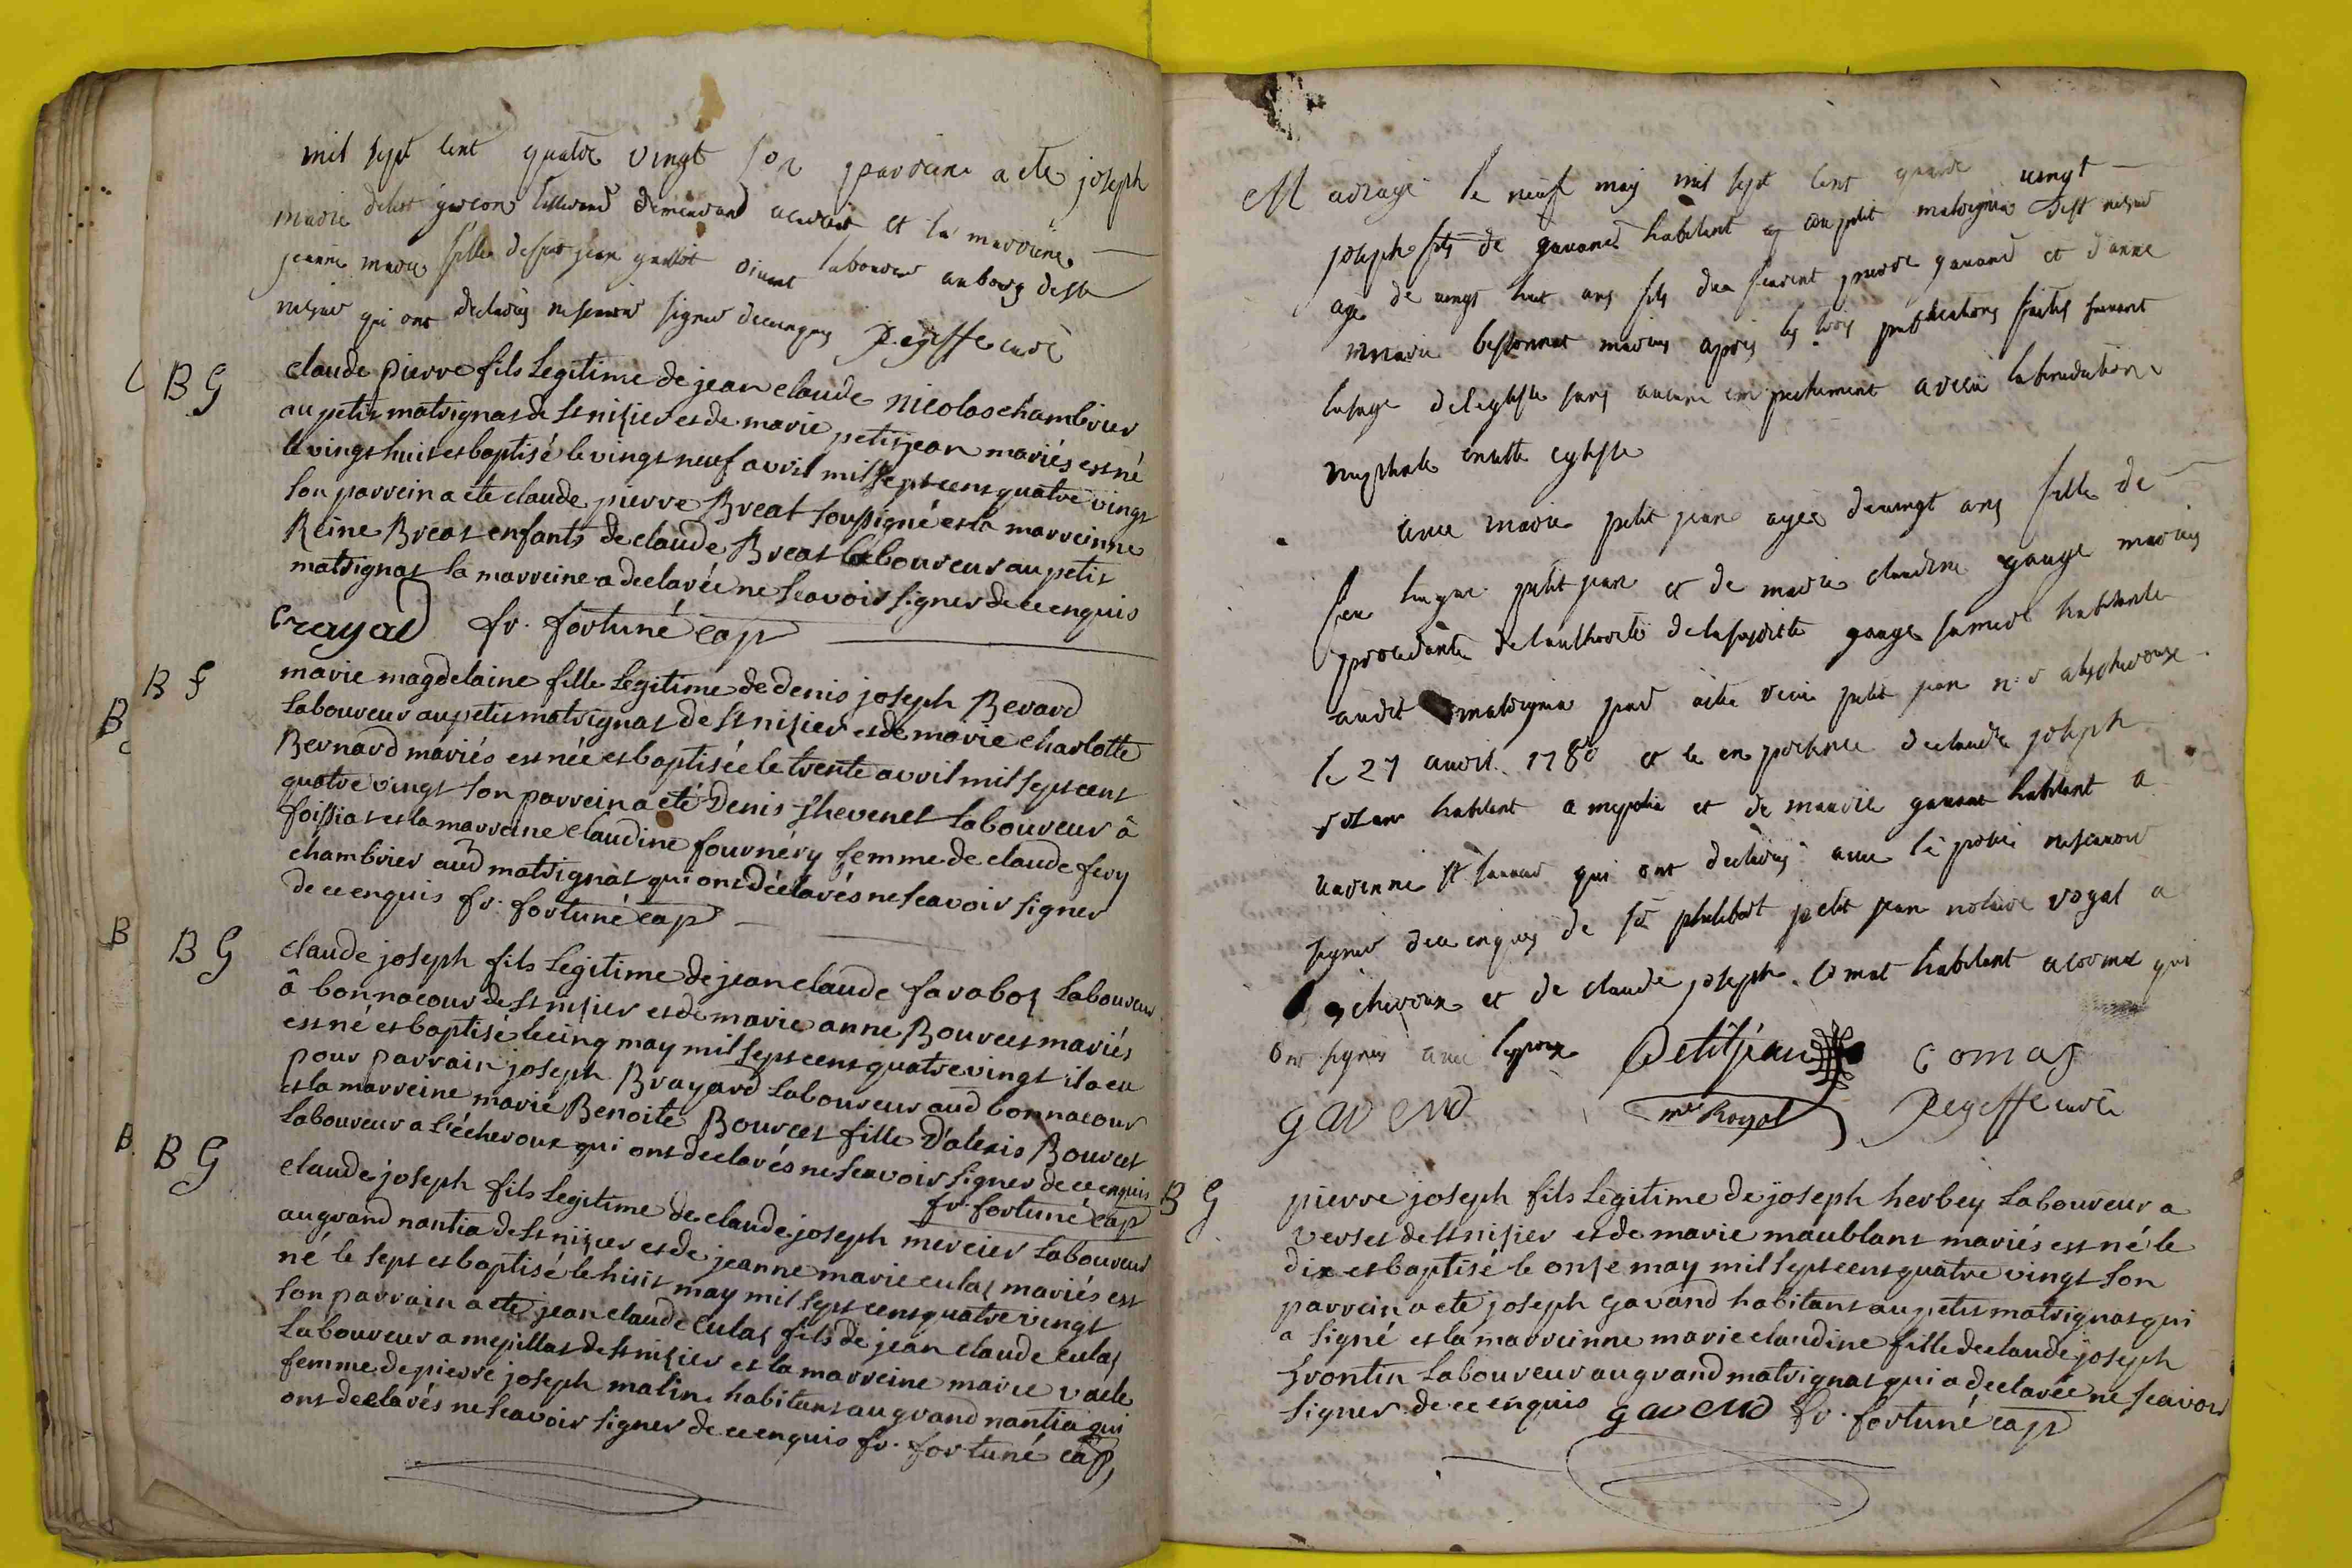 mil sept cent quatre vingt son parrain a eté joseph
marie garcon tisserand demeurand et la marraine
jeanne marie fille de feu jean vivant laboureur au bourg de st
nisier qui ont declarés ne scavoir signer de ce enquis curé
B G claude pierre fils legitime de jean claude nicolas chambrier
au petit matrignat de st nisier et de marie petitjean mariés est né
le vingt huit et baptisé le vingt neuf avril mil sept cent quatre vingt
son parrein a eté claude pierre Breat soussigné et la marreinne
Reine Breat enfants de claude Breat laboureur au petit
matrignat la marreine a declarée ne scavoir signer de ce enquis
fr. fortuné cap
B F marie magdelaine fille legitime de denis joseph Revard
B laboureur au petit matrignat de st nisier et de marie charlotte
Bernard mariés est née et baptisée le trente avril mil sept cent
quatre vingt son parrein a eté Denis thevenet laboureur à
foissiat et la marreine claudine fournéry femme de claude fery
chambrier aud matrignat qui ont déclarés ne scavoir signer
de ce enquis fr. fortuné cap
B B G claude joseph fils legitime de jean claude favabos laboureur
à bonnacour de st nisier et de marie anne Bourcet mariés
est né et baptisé le cinq may mil sept cent quatre vingt il a eu
pour parrain joseph Brayard laboureur aud bonnacour
et la marreine marie Benoite Bourcet fille d'alexis Bourcet
laboureur a l'écheroux qui ont declarés ne scavoir signer de ce enquis
fr. fortuné cap
B. B G claude joseph fils legitime de claude joseph mercier laboureur
au grand nantia de st nisier et de jeanne marie culas mariés est
né le sept et baptisé le huit may mil sept cent quatre vingt
son parrain a eté jean claude Culas fils de jean claude culas
laboureur a mépillat de st nisier et la marreine marie vaele
femme de pierre joseph malin habitant au grand nantia qui
ont declarés ne scavoir signer de ce enquis fr. fortuné cap
Mariage le neuf may mil sept cent quatre vingt
joseph fils de gavand habitant au petit matrignia st nisier
agé de vingt huit ans fils du pierre gavand et d'anne
marie bessonnat mariés apres les trois publications faites suivant
lusage de leglise sans aucun empechement a la benediction
nuptiale en cette eglise
avec marie petit jean agée de vingt ans fille de
feu petit jean et de marie claudine gauge mariés
procedante de lauthorité de la susditte gauge sa mere habitante
audit matrignia par acte petit jean a lescheroux
le 27 avril 1780 et ce en presence de claude joseph
habitant a mepilia et de gavant habitant a
varenne st sauveur qui ont declarés avec ne scavoir
signer de ce enquis de philibert petit jean notaire royal a
lescheroux et de claude joseph comat habitant a cormoz qui
ont signés avec lepoux Petitjean comas
gavend nre Royal curé
B G pierre joseph fils legitime de joseph herbey laboureur a
verset de st nisier et de marie maublant mariés est né le
dix et baptisé le onse may mil sept cent quatre vingt son
parrein a eté joseph gavand habitant au petit matrignat qui
a signé et la marreinne marie claudine fille de claude joseph
frontin laboureur au grand matrignat qui a declarée ne scavoir
signer de ce enquis gavend fr. fortuné cap